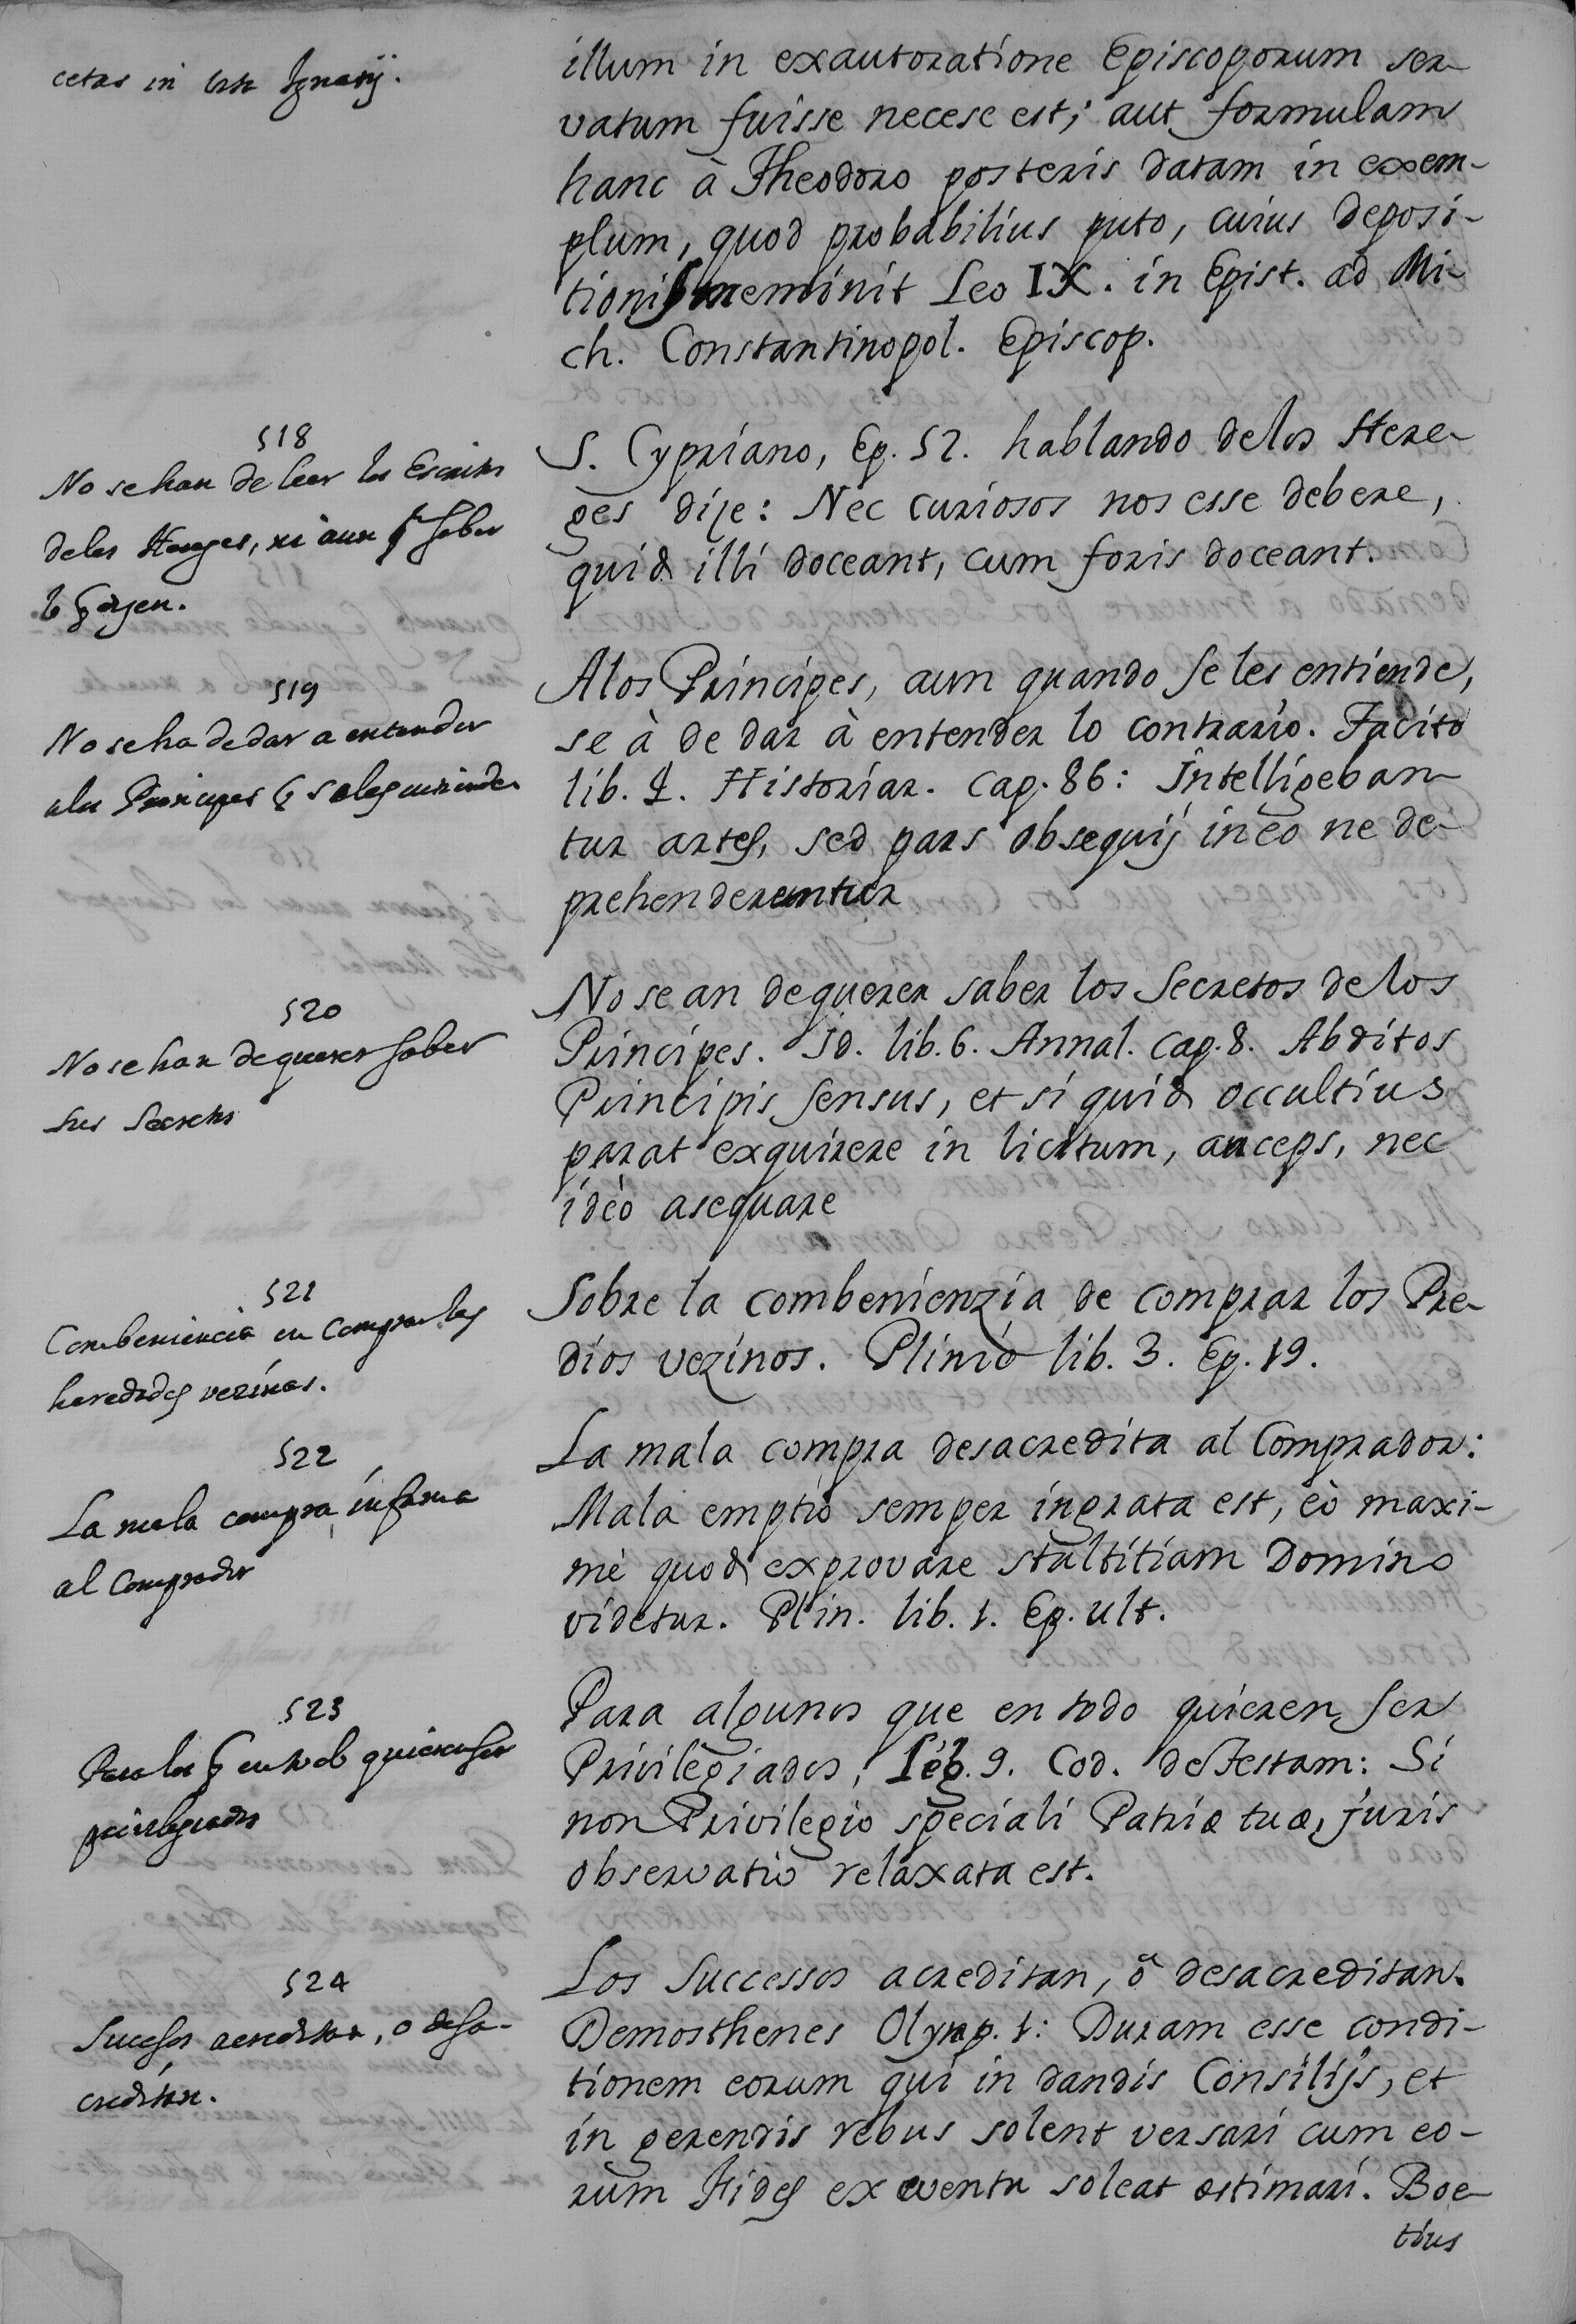 cetas in
illum in exautoratione Episcoporum ser-
vatum fuisse necese est; aut formulam
hanc à Theodoro posteris datam in exem-
plum, quod probabilius puto, cuius deposi-
tionis meminit Leo IX. in Epist. ad Mi-
ch. Constantinopol. Episcop.
518
No se han de leer los Escritos
delos Hereges, ni aun pa. saber
lo q dizen.
S. Cypriano, Ep. 52. hablando delos Here-
ges dize: Nec curiosos nos esse debere,
quid illi doceant, cum foris doceant.
519
No se ha de dar a entender
alos Principes q se les entiende
Alos Principes, aun quando se les entiende,
se à de dar à entender lo contrario. Tacito
lib. 4. Historiar. cap. 86: Intelligeban-
tur artes, sed pars obsequij in eo ne de-
prehenderentur
520
No se han de querer saber
sus secretos
No se an de querer saber los Secretos de los
Principes. Id. lib. 6. Annal. cap. 8. Abditos
Principis sensus, et si quid occultius
parat exquirere in licitum, anceps, nec
ideò asequare
521
Combeniencia en comprar las
heredades vezinas.
Sobre la combenienzia de comprar los Pre-
dios vezinos. Plinio lib. 3. Ep. 19.
522
La mala compra infama
al Comprador
La mala compra desacredita al Comprador:
Mala emptio semper ingrata est, eò maxi-
mè quod exprovare stultitiam Domino
videtur. Plin. lib. 1. Ep. ult.
523
Para los q en todo quieren ser
privilegiados
Para algunos que en todo quieren ser
Privilegiados, leg. 9. Cod. de Testam: Si
non Privilegio speciali Patriæ tuæ, juris
observatio relaxata est.
524
Sucesos acreditan, o desa-
creditan.
Los Successos acreditan, ò desacreditan.
Demosthenes Olynp. 1: Duram esse condi-
tionem eorum qui in dandis Consilijs, et
in gerendis rebus solent versari cum eo-
rum Fides ex eventu soleat æstimari. Boe-
tius